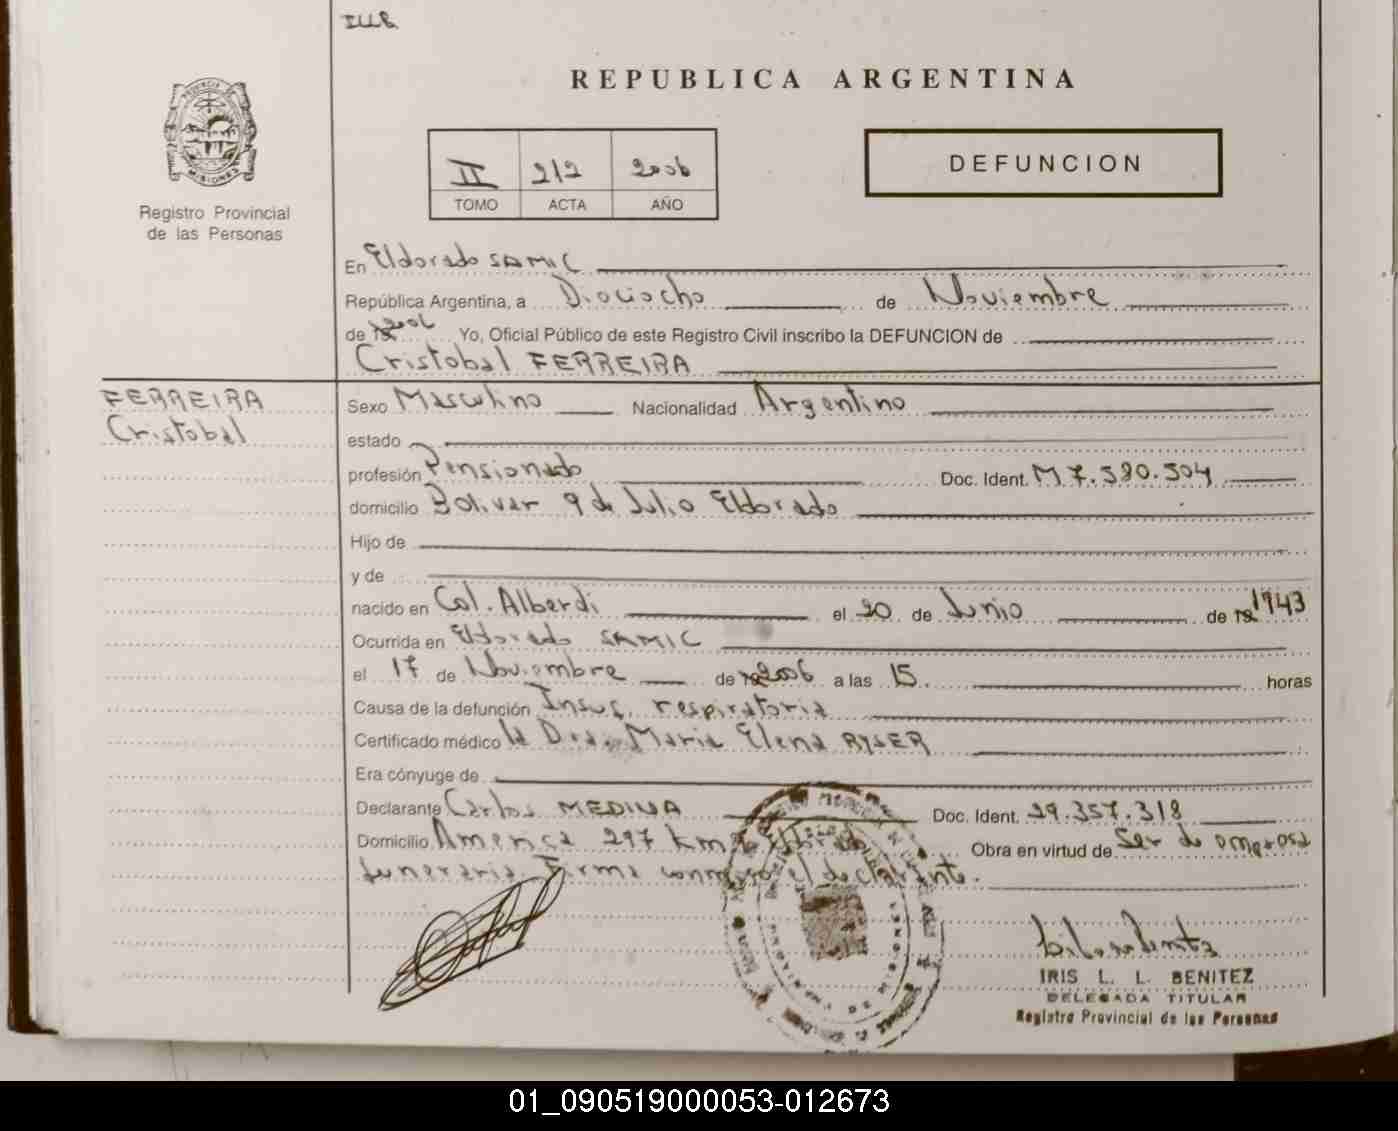 REPUBLICA ARGENTINA
PROVINCIA DE
MISIONES
Registro Provincial
de las Personas
II 212 2006
TOMO ACTA AÑO
DEFUNCION
En Eldorado SAMIC
República Argentina, a Dieciocho de Noviembre
de 2006 Yo, Oficial Público de este Registro Civil inscribo la DEFUNCION de
Cristobal FERREIRA
FERREIRA
Cristobal
Sexo Masculino Nacionalidad Argentino
estado
profesión Pensionado Doc. Ident. M 7.580.504
domicilio Bolivar 9 de Julio Eldorado
Hijo de
y de
nacido en Col. Alberdi el 20 de Junio de 1943
Ocurrida en Eldorado SAMIC
el 17 de Noviembre de 2006 a las 15. horas
Causa de la defunción Insuf. respiratoria
Certificado médico la Dra. Maria Elena RYSER
Era cónyuge de
Declarante Carlos MEDINA Doc. Ident. 29.357.318
Domicilio America 297 km Eldorado Obra en virtud de Ser de empresa
funeraria. Firma conmigo el declarante.
IRIS L. L. BENITEZ
DELEGADA TITULAR
Registro Provincial de las Personas
01_090519000053-012673